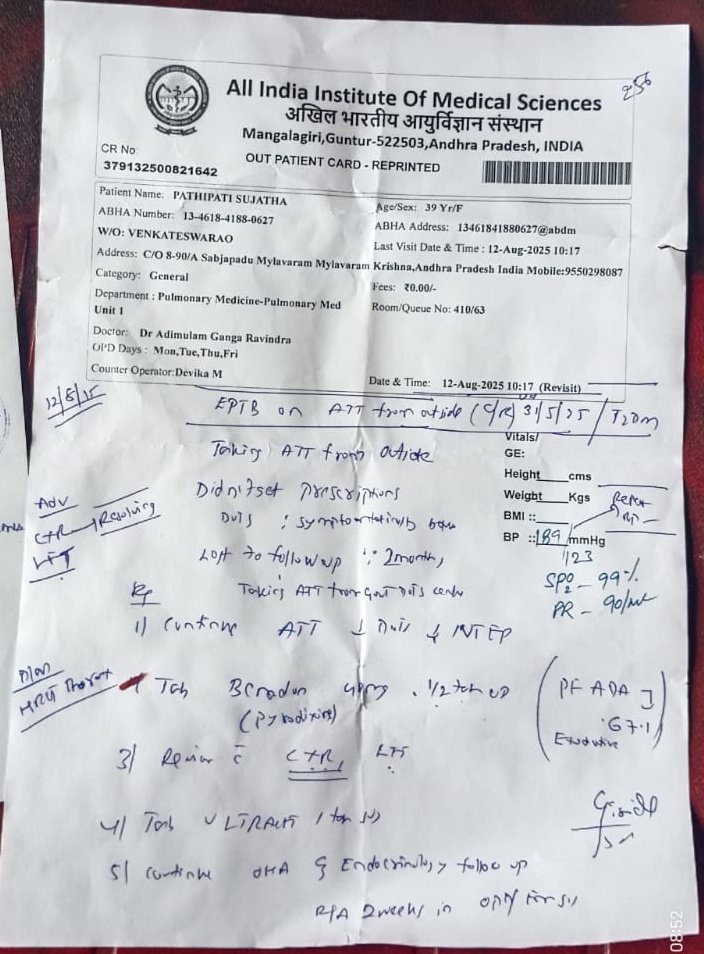 256
All India Institute Of Medical Sciences
अखिल भारतीय आयुर्विज्ञान संस्थान
Mangalagiri,Guntur-522503,Andhra Pradesh, INDIA
OUT PATIENT CARD - REPRINTED
CR No
379132500821642
Patient Name: PATHIPATI SUJATHA
Age/Sex: 39 Yr/F
ABHA Number: 13-4618-4188-0627
ABHA Address: 13461841880627@abdm
W/O: VENKATESWARAO
Last Visit Date & Time : 12-Aug-2025 10:17
Address: C/O 8-90/A Sabjapadu Mylavaram Mylavaram Krishna,Andhra Pradesh India Mobile:9550298087
Category: General
Fees: ₹0.00/-
Department : Pulmonary Medicine-Pulmonary Med
Unit 1
Room/Queue No: 410/63
Doctor: Dr Adimulam Ganga Ravindra
OPD Days : Mon,Tue,Thu,Fri
Counter Operator:Devika M
Date & Time: 12-Aug-2025 10:17 (Revisit)
EPTB on ATT from outside 31/5/25 / T2DM
Taking ATT from outside
Vitals/
GE:
Height cms
Weight Kgs
BMI ::
BP :: 189 mmHg
/123
SPO2 - 99%
PR - 90/
Adv
CXR → Resolving
LFT
Didn't get prescriptions
Lost to follow up ∵ 2 month
Rx
Taking ATT from Govt Dots
1) Continue ATT NTEP
Plan
HRCT Thorax
Tab Benadon 40mg 1/2 tab OD
(Pyridoxine)
(PF ADA
67.1
3) Review c̄ CXR, LFT
4) Tab 1 tab
5) Continue OHA Endocrinology follow up
2 weeks in OPD
08:52